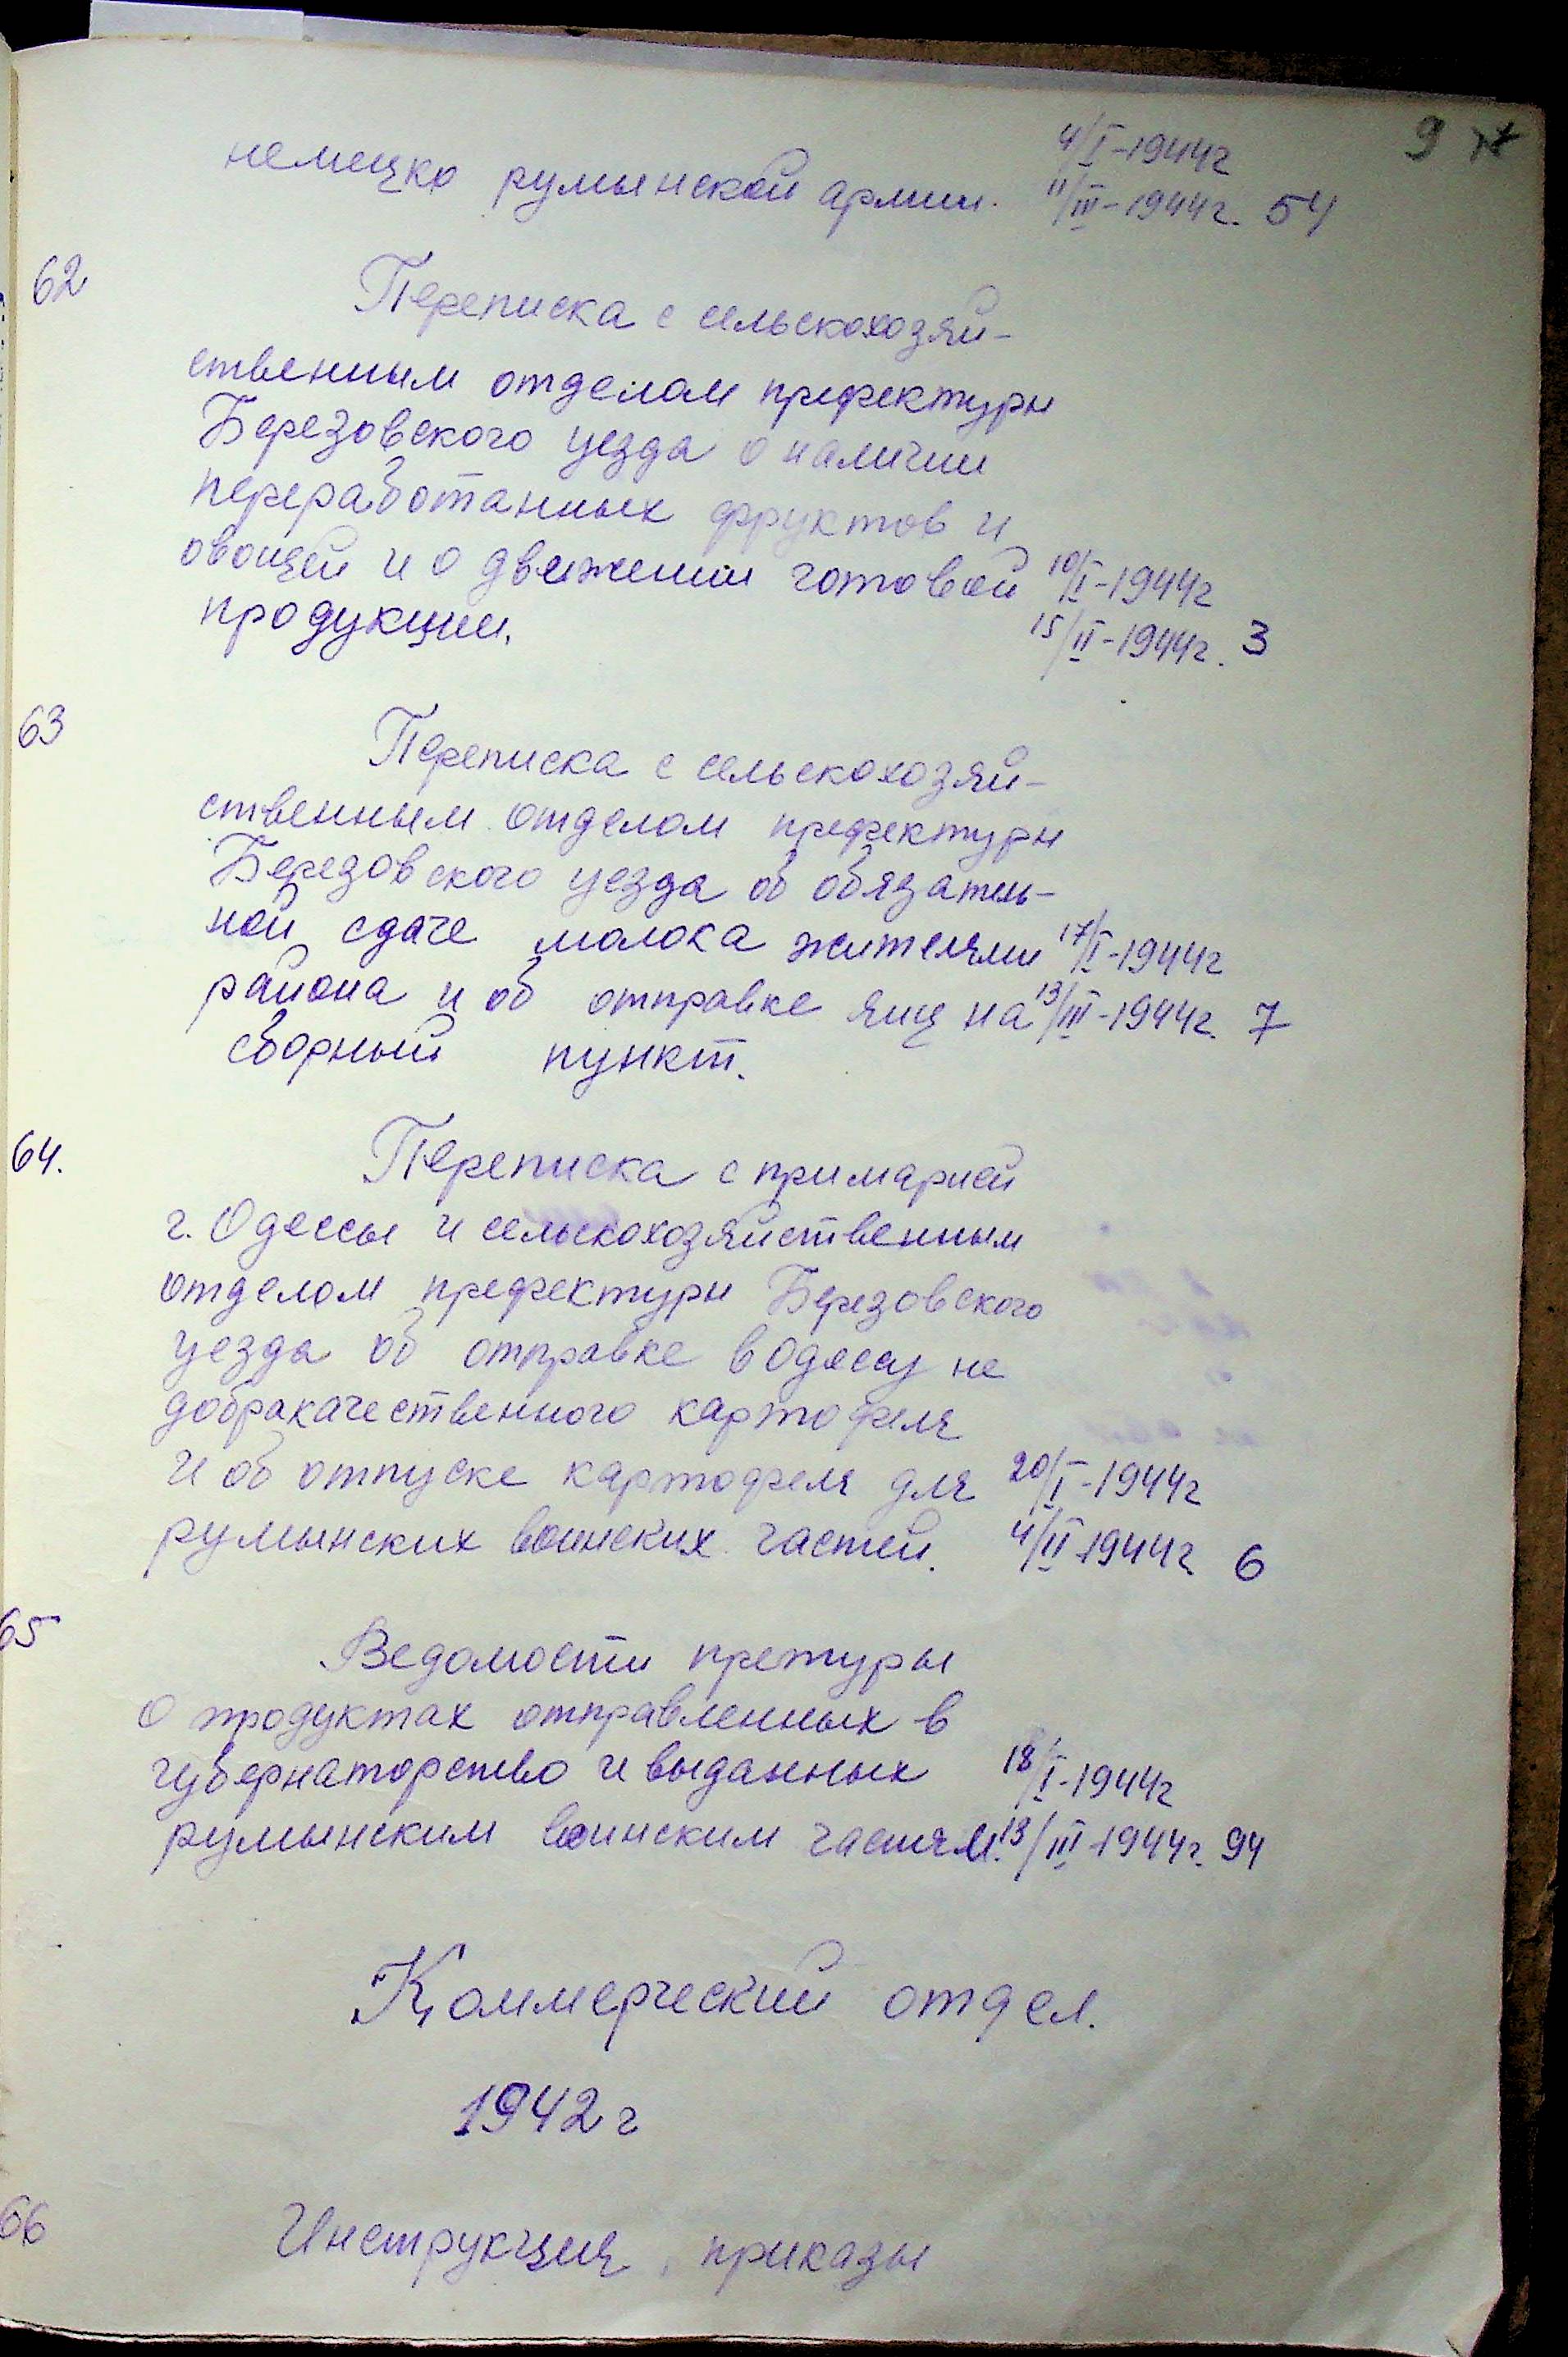 9
4/I-1944г
немецко румынской армии. 11/III-1944г. 54
62 Переписка с сельскохозяй-
ственным отделом префектуры
Березовского уезда о наличии
переработанных фруктов и
овощей и о движении готовой 10/I-1944г
продукции. 15/II-1944г. 3
63 Переписка с сельскохозяй-
ственным отделом префектуры
Березовского уезда об обязатель-
ной сдаче молока жителями 17/I-1944г
района и об отправке яиц на 13/III-1944г. 7
сборный пункт.
64. Переписка с примарией
г. Одессы и сельскохозяйственным
отделом префектуры Березовского
уезда об отправке в Одессу не
доброкачественного картофеля
и об отпуске картофеля для 20/I-1944г
румынских воинских частей. 4/II-1944г. 6
65 Ведомости претуры
о продуктах отправленных в
губернаторство и выданных 18/I-1944г
румынским воинским частям. 13/III-1944г. 94
Коммерческий отдел.
1942г
66 Инструкция, приказы